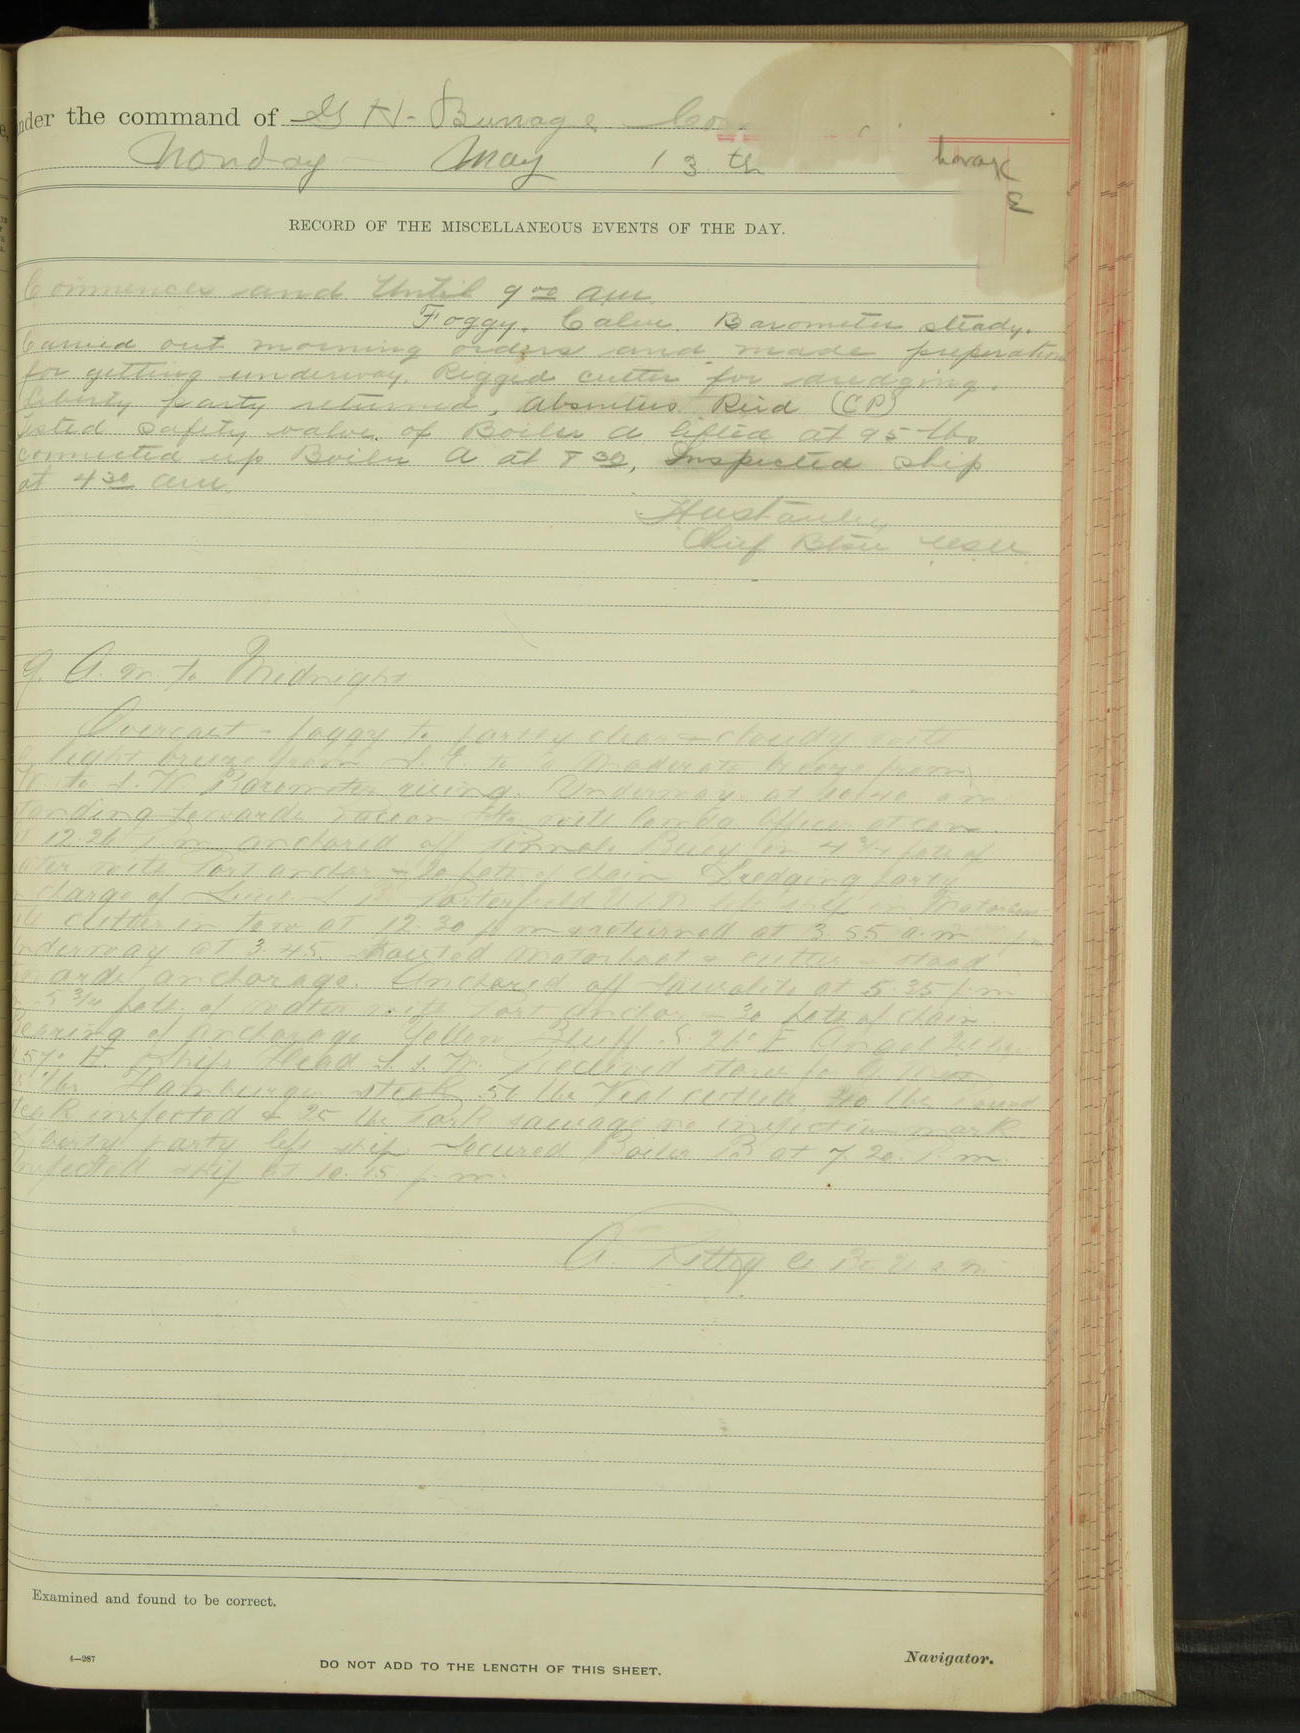 nder the command of G H. Burrage Com
Monday May 13th
RECORD OF THE MISCELLANEOUS EVENTS OF THE DAY.
Commences and Until 9 00 am
Foggy. Calm. Barometer steady.
Carried out morning orders and made preperation
for getting underway. Rigged cutter for dredging.
liberty party returned, absentees Reid (CP)
ested safety valve of Boiler A lifted at 95 lbs
connected up Boiler A at 8 30, Inspected ship
at 4 30 am
Chief Btsn USN
9. A. m. to Midnight
Overcast - foggy to partly clear & cloudy with
light breeze from S. E. to a moderate breeze from
W. to S. W. Barometer rising. Underway at 10:40 am
tanding towards with Comdg Officer at con.
12.26 p m anchored off Pinnole Buoy in 4 3/4 fath of
ater with Port anchor - 20 fath of chain Dredging party
charge of Lieut Porterfield U.S.N. left ship in Motorboat
cutter in tow at 12.30 p m & returned at 3.55 a.m
nderway at 3.45. hoisted Motorboat & cutter - stood
wards anchorage. Anchored off Sausalito at 5.35 p m
5 3/4 fath. of water with Port anchor - 30 fath of chain
earing of anchorage Yellow Bluff S. 26° E Angel
57° E. Ships Head S. S. W. Received stores for G. Mess
lbs Hamburger steak 50 lbs Veal cutlets, 40 lbs round
teak inspected & 25 lbs Pork sausage no inspection mark
iberty party left ship Secured Boiler B at 7.20. P. m.
nspected ship at 10.45 p. m.
Examined and found to be correct.
4—287
DO NOT ADD TO THE LENGTH OF THIS SHEET.
Navigator.